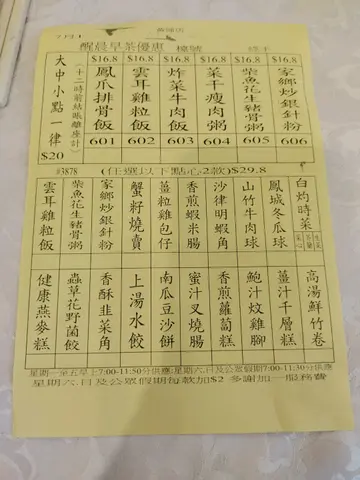 醒晨早茶優惠 檯號
$16.8 $16.8 $16.8 $16.8 $16.8 $16.8
大中小點一律 $20
(十二時前結賬離座計)
鳳爪排骨飯 601
雲耳雞粒飯 602
炸菜牛肉飯 603
菜干瘦肉粥 604
柴魚花生豬骨粥 605
家鄉炒銀針粉 606
#3878 (任選以下點心2款)$29.8
雲耳雞粒飯
柴魚花生豬骨粥
家鄉炒銀針粉
蟹籽燒賣
薑粒雞包仔
香煎蝦米腸
沙律明蝦角
山竹牛肉球
鳳城冬瓜球
白灼時菜
健康燕麥糕
蟲草花野菌餃
香酥韭菜角
上湯水餃
南瓜豆沙餅
蜜汁叉燒腸
香煎蘿蔔糕
鮑汁炆雞腳
薑汁千層糕
高湯鮮竹卷
星期一至五早上7:00-11:50分供應;星期六.日及公眾假期7:00-11:30分供應
星期六.日及公眾假期每款加$2 多謝加一服務費